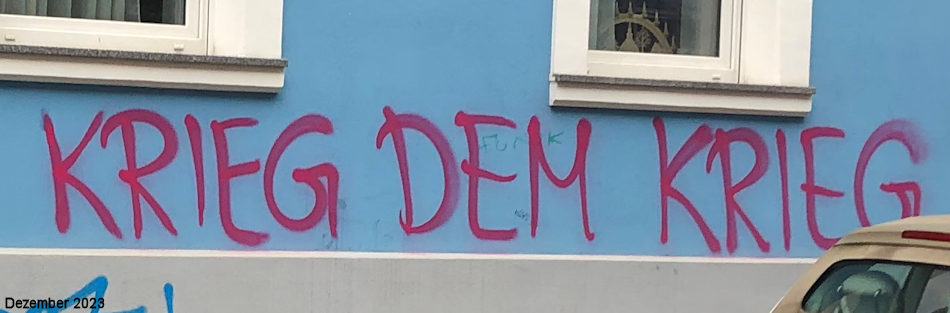 KRIEG DEM KRIEG
FUNK
Dezember 2023